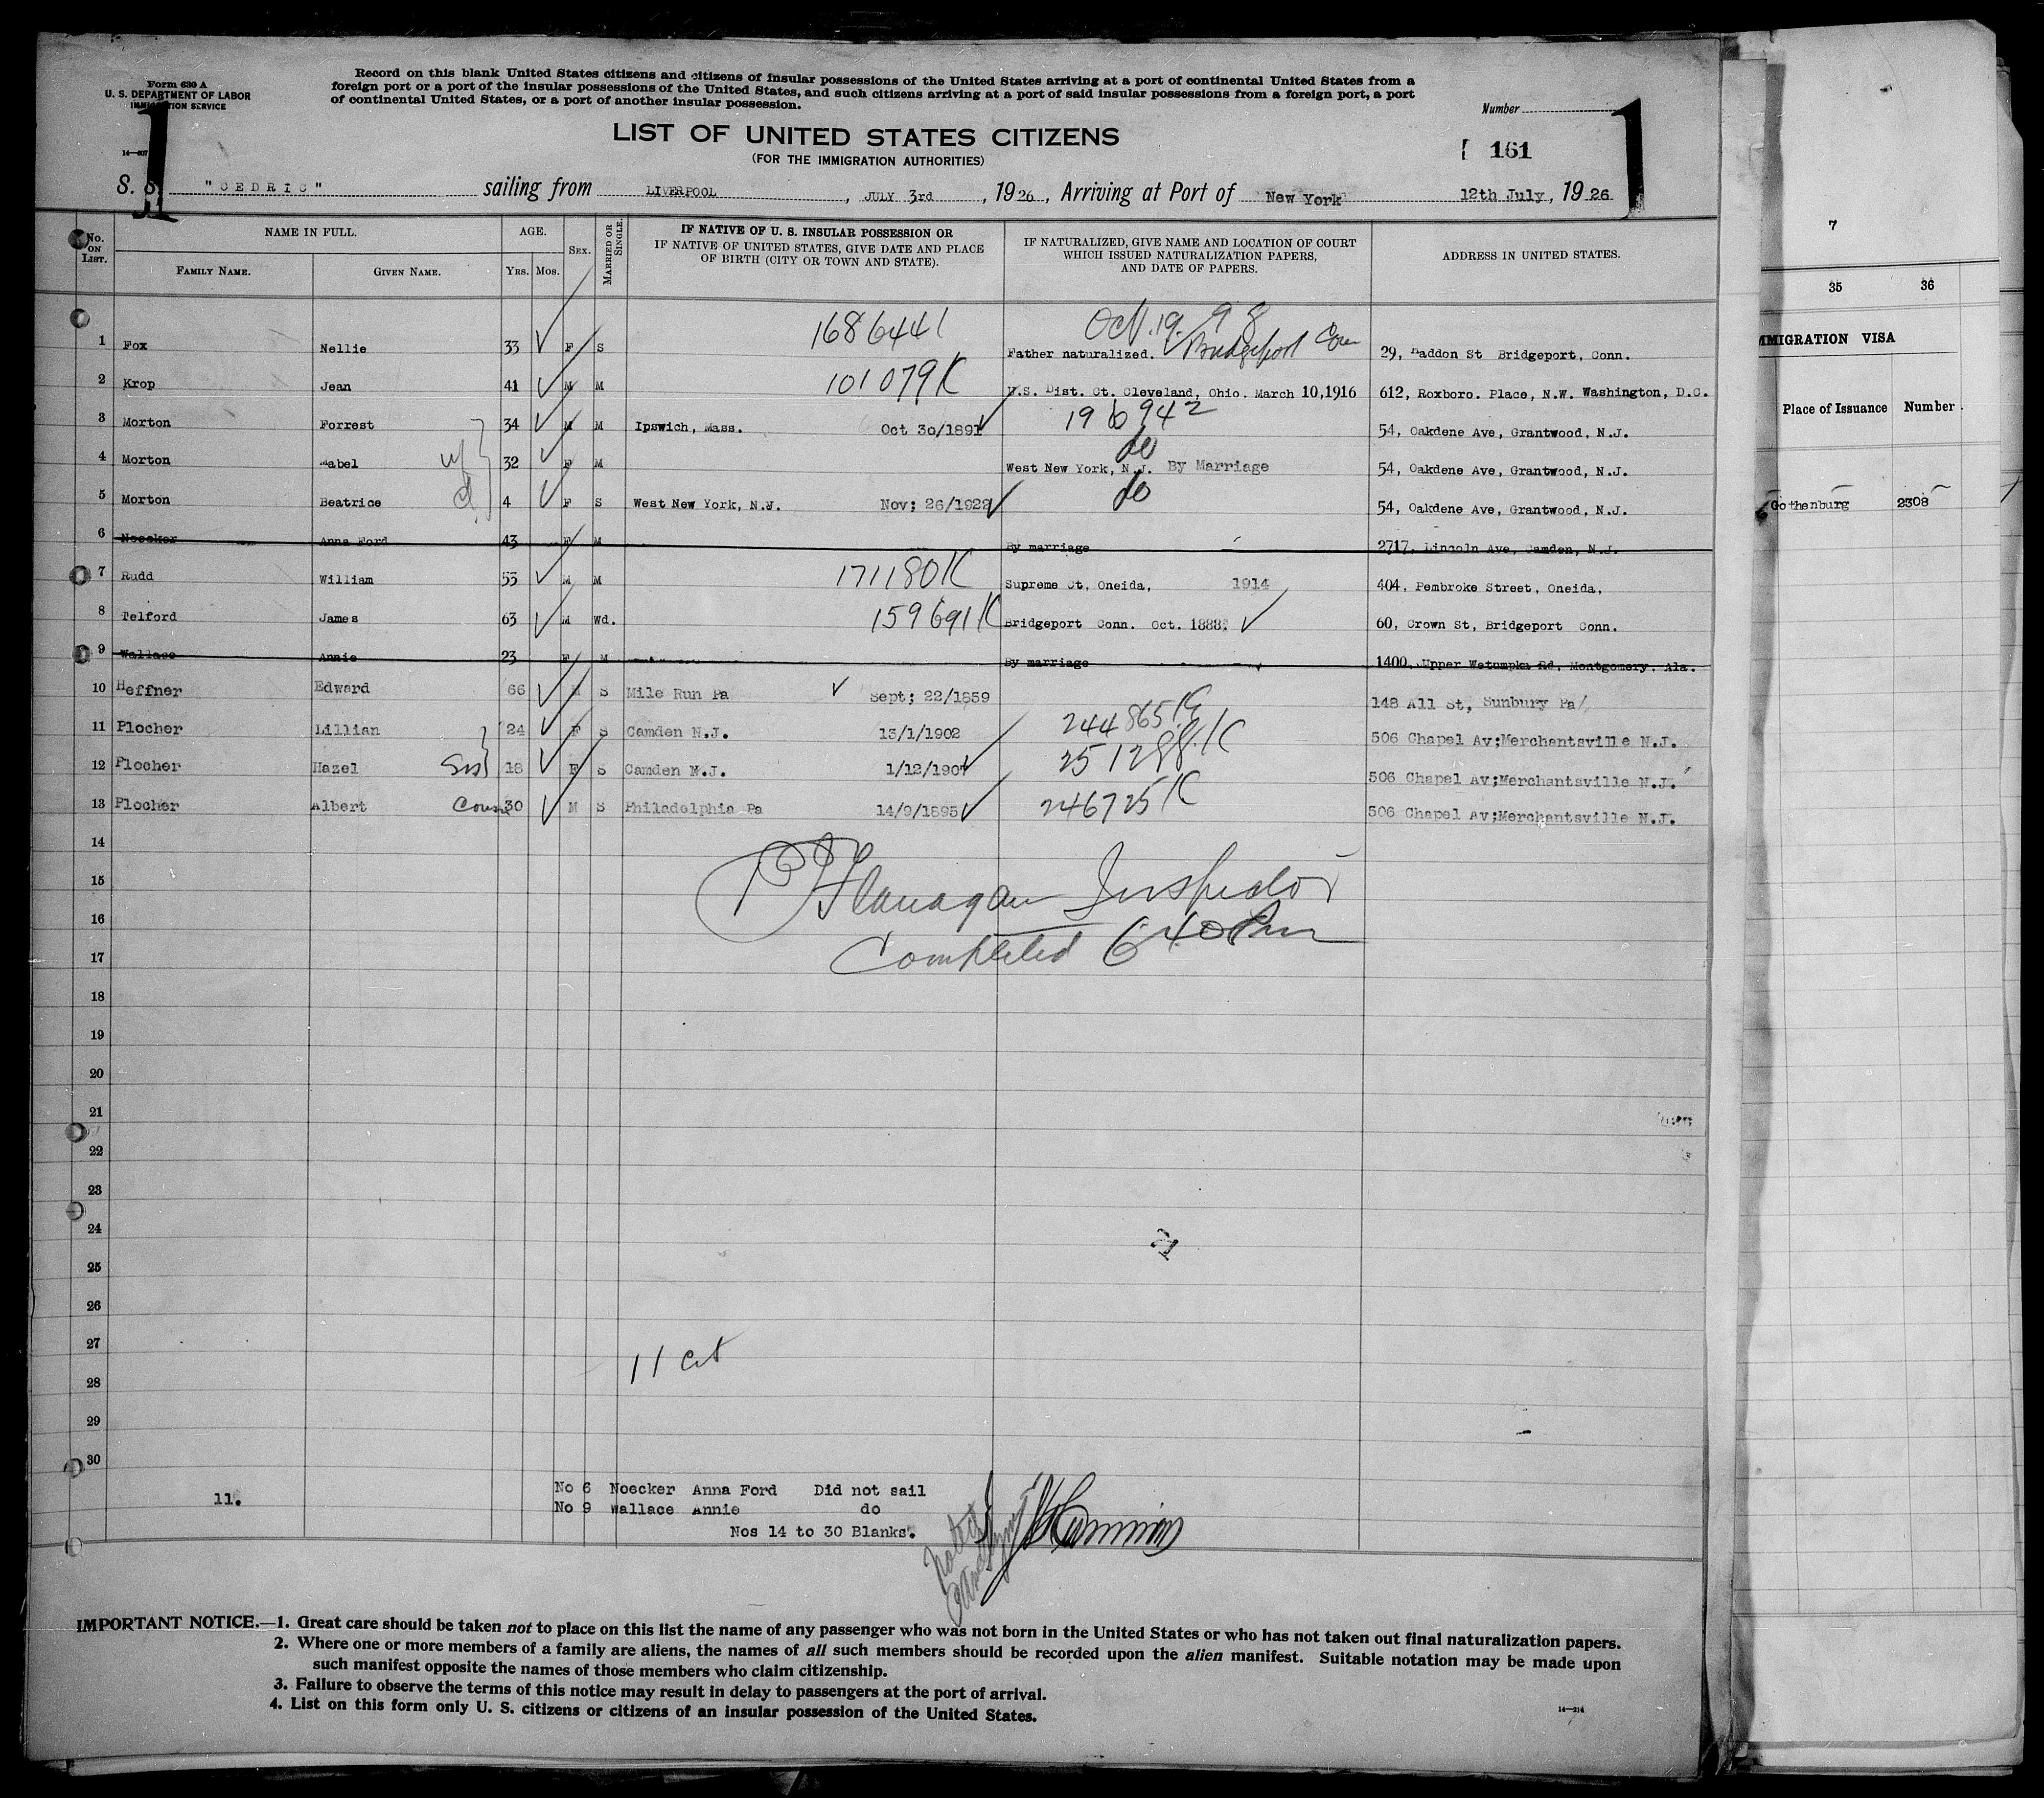 Form 630 A
U. S. DEPARTMENT OF LABOR
IMMIGRATION SERVICE
Record on this blank United States citizens and citizens of insular possessions of the United States arriving at a port of continental United States from a
foreign port or a port of the insular possessions of the United States, and such citizens arriving at a port of said insular possessions from a foreign port, a port
of continental United States, or a port of another insular possession.
Number
LIST OF UNITED STATES CITIZENS
(FOR THE IMMIGRATION AUTHORITIES)
161
1 1
S. S. "CEDRIC" sailing from LIVERPOOL, JULY 3rd, 1926, Arriving at Port of New York 12th July, 1926
No. ON LIST.
NAME IN FULL.
FAMILY NAME. GIVEN NAME.
AGE.
YRS. MOS.
SEX.
MARRIED OR SINGLE.
IF NATIVE OF U. S. INSULAR POSSESSION OR
IF NATIVE OF UNITED STATES, GIVE DATE AND PLACE
OF BIRTH (CITY OR TOWN AND STATE).
IF NATURALIZED, GIVE NAME AND LOCATION OF COURT
WHICH ISSUED NATURALIZATION PAPERS,
AND DATE OF PAPERS.
ADDRESS IN UNITED STATES.
168 6441 Oct. 19. 98
1 Fox Nellie 33 F S Father naturalized. Bridgeport Conn 29, Haddon St Bridgeport, Conn.
2 Krop Jean 41 M M 101079K U.S. Dist. Ct. Cleveland, Ohio. March 10,1916 612, Roxboro. Place, N.W. Washington, D.C.
3 Morton Forrest 34 M M Ipswich, Mass. Oct 30/1891 196942 54, Oakdene Ave, Grantwood, N.J.
4 Morton Mabel wf 32 F M do West New York, N.J. By Marriage 54, Oakdene Ave, Grantwood, N.J.
5 Morton Beatrice d 4 F S West New York, N.J. Nov; 26/1922 do 54, Oakdene Ave, Grantwood, N.J.
6 Noecker Anna Ford 43 F M By marriage 2717, Lincoln Ave, Camden, N.J.
7 Rudd William 53 M M 171180K Supreme Ct. Oneida, 1914 404, Pembroke Street, Oneida,
8 Telford James 63 M Wd. 159691K Bridgeport Conn. Oct. 1888. 60, Crown St, Bridgeport Conn.
9 Wallace Annie 23 F M By marriage 1400, Upper Wetumpka Rd, Montgomery, Ala.
10 Heffner Edward 66 M S Mile Run Pa Sept; 22/1859 148 All St, Sunbury Pa/
11 Plocher Lillian 24 F S Camden N.J. 13/1/1902 244865K 506 Chapel Av;Merchantsville N.J.
12 Plocher Hazel Sis 18 F S Camden N.J. 1/12/1907 251288K 506 Chapel Av;Merchantsville N.J.
13 Plocher Albert Cousn 30 M S Philadelphia Pa 14/9/1895 246725K 506 Chapel Av;Merchantsville N.J.
14
15
Flanagan Inspector
16
Completed 6 40 Pm
17
18
19
20
21
22
23
24
25
26
27
11 Cit
28
29
30
11.
No 6 Noecker Anna Ford Did not sail
No 9 Wallace Annie do
Nos 14 to 30 Blanks.
IMPORTANT NOTICE.—1. Great care should be taken not to place on this list the name of any passenger who was not born in the United States or who has not taken out final naturalization papers.
2. Where one or more members of a family are aliens, the names of all such members should be recorded upon the alien manifest. Suitable notation may be made upon
such manifest opposite the names of those members who claim citizenship.
3. Failure to observe the terms of this notice may result in delay to passengers at the port of arrival.
4. List on this form only U. S. citizens or citizens of an insular possession of the United States.
14—214
7
35 36
IMMIGRATION VISA
Place of Issuance Number
Gothenburg 2308